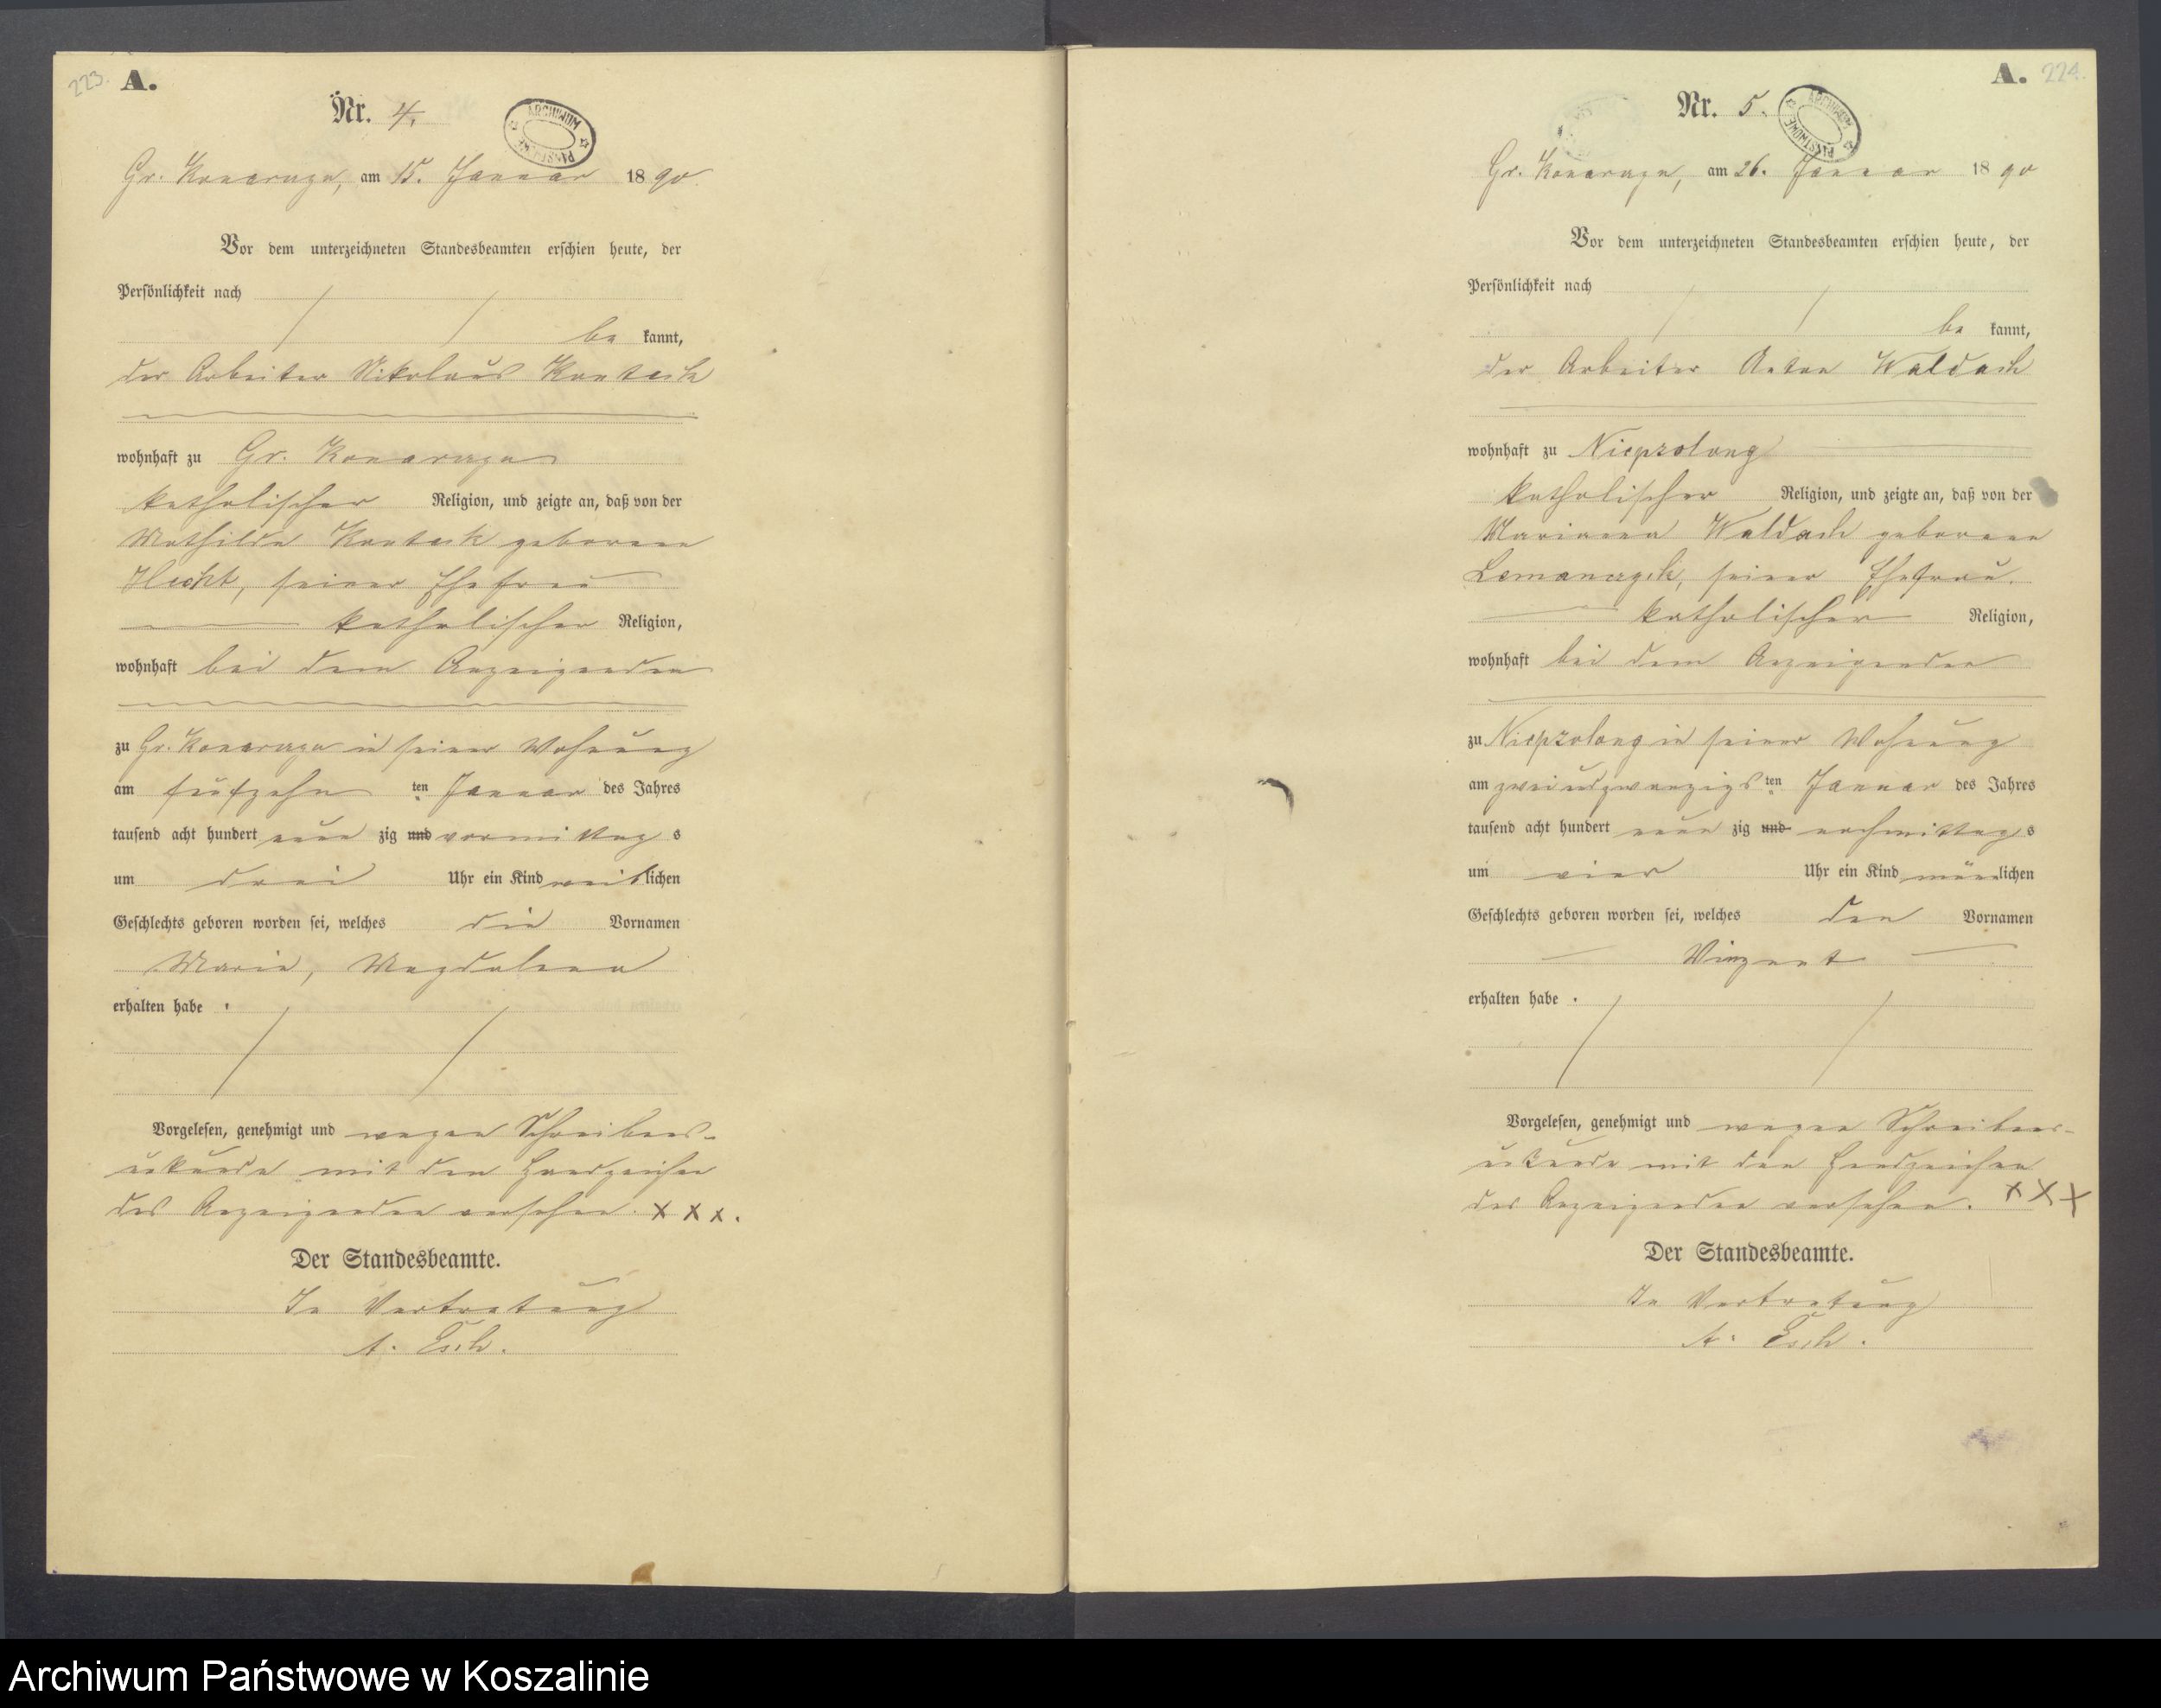 223.
A.
Nr. 4.
ARCHIWUM PAŃSTWOWE
Gr. Konarczyn, am 15. Januar 1890.
Vor dem unterzeichneten Standesbeamten erschien heute, der
Persönlichkeit nach
be kannt,
der Arbeiter Nikolaus Kontack
wohnhaft zu Gr. Konarczyn
katholischer Religion, und zeigte an, daß von der
Mathilde Kontack geborene
Hecht, seiner Ehefrau
katholischer Religion,
wohnhaft bei dem Anzeigenden
zu Gr. Konarczyn in seiner Wohnung
am fünfzehn ten Januar des Jahres
tausend acht hundert neun zig und vormittag s
um drei Uhr ein Kind weiblichen
Geschlechts geboren worden sei, welches die Vornamen
Maria, Magdalena
erhalten habe.
Vorgelesen, genehmigt und wegen Schreibens-
unkunde mit den Handzeichen
des Anzeigenden versehen. x x x.
Der Standesbeamte.
In Vertretung
A. Esch.
A. 224.
Nr. 5.
ARCHIWUM PAŃSTWOWE
Gr. Konarczyn, am 26. Januar 1890
Vor dem unterzeichneten Standesbeamten erschien heute, der
Persönlichkeit nach
be kannt,
der Arbeiter Anton Waldach
wohnhaft zu Niepszolong
katholischer Religion, und zeigte an, daß von der
Marianna Waldach geborene
Lemanczyk, seiner Ehefrau.
katholischer Religion,
wohnhaft bei dem Anzeigenden
zu Niepszolong in seiner Wohnung
am zweiundzwanzigs ten Januar des Jahres
tausend acht hundert neun zig und nachmittag s
um vier Uhr ein Kind männlichen
Geschlechts geboren worden sei, welches den Vornamen
Vinzent
erhalten habe.
Vorgelesen, genehmigt und wegen Schreibens-
unkunde mit den Handzeichen
des Anzeigenden versehen. x x x
Der Standesbeamte.
In Vertretung
A. Esch.
Archiwum Państwowe w Koszalinie